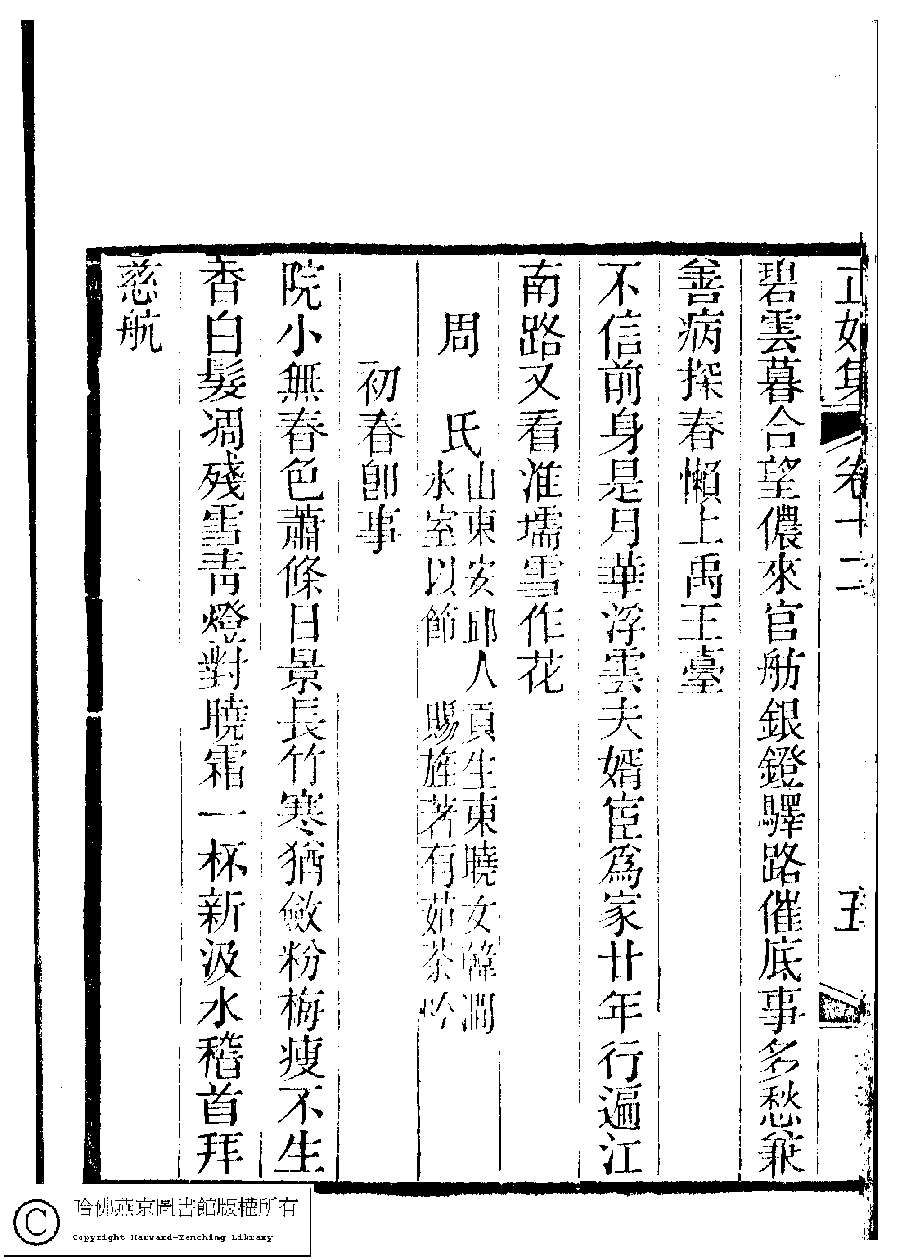 正始集 卷十二 五
碧雲暮合望儂來官舫銀鐙驛路催底事多愁兼
善病探春懶上禹王臺
不信前身是月華浮雲夫婿宦爲家廿年行遍江
南路又看淮壖雪作花
周 氏 山東安邱人貢生東曉女韓澗
水室以節 賜旌著有茹荼吟
初春卽事
院小無春色蕭條日景長竹寒猶斂粉梅瘦不生
香白髮凋殘雪靑燈對曉霜一杯新汲水稽首拜
慈航
哈佛燕京圖書館版權所有
Copyright Harvard-Yenching Library